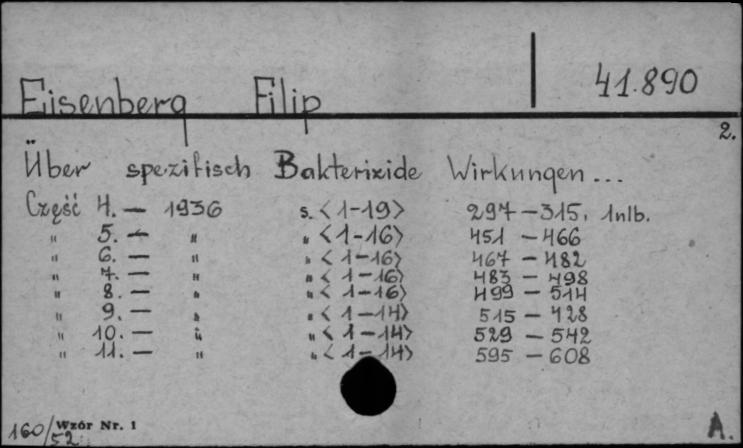 41.890
Eisenberg Filip
2.
Über spezifisch Bakterixide Wirkungen...
Część 4. — 1936 s. <1-19> 297 — 315, 1nlb.
" 5. — " " <1-16> 451 — 466
" 6. — " " <1-16> 467 — 482
" 7. — " " <1-16> 483 — 498
" 8. — " " <1-16> 499 — 514
" 9. — " " <1-14> 515 — 428
" 10. — " " <1-14> 529 — 542
" 11. — " " <1-14> 595 — 608
160/52 Wzór Nr. 1
A.